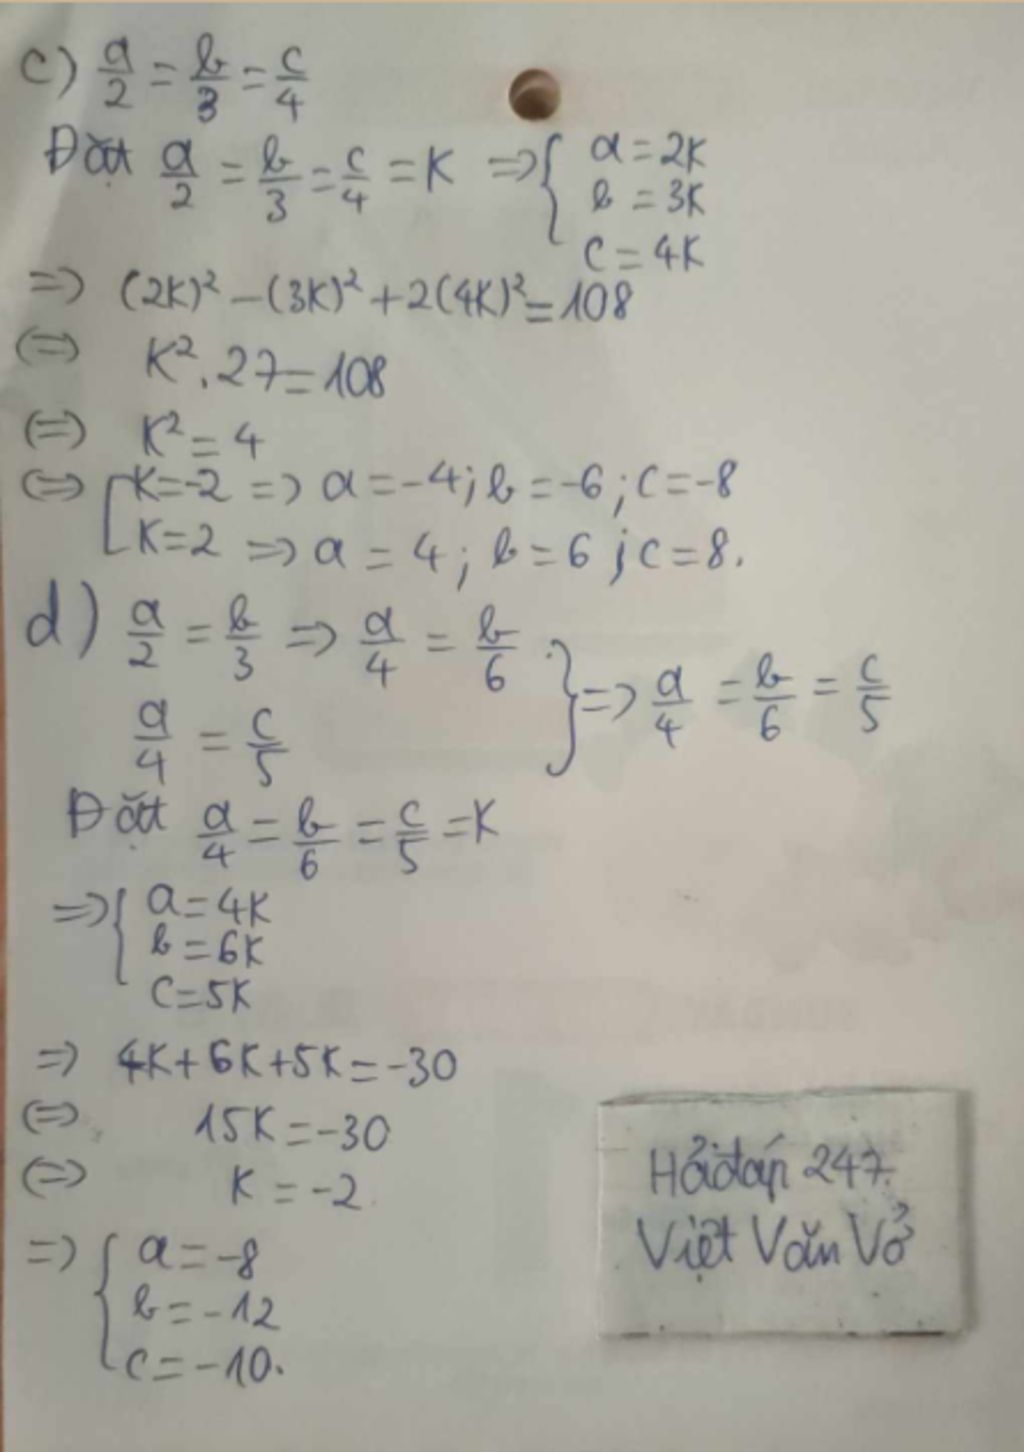 c) a/2 = b/3 = c/4
Đặt a/2 = b/3 = c/4 = K => { a = 2K
b = 3K
c = 4K
=> (2K)² - (3K)² + 2(4K)² = 108
(=) K² . 27 = 108
(=) K² = 4
(=) [ K = -2 => a = -4 ; b = -6 ; c = -8
K = 2 => a = 4 ; b = 6 ; c = 8.
d) a/2 = b/3 => a/4 = b/6
a/4 = c/5 } => a/4 = b/6 = c/5
Đặt a/4 = b/6 = c/5 = K
=> { a = 4K
b = 6K
c = 5K
=> 4K + 6K + 5K = -30
(=) 15K = -30
(=) K = -2
=> { a = -8
b = -12
c = -10.
Hỏi đáp 247.
Việt Văn Vở